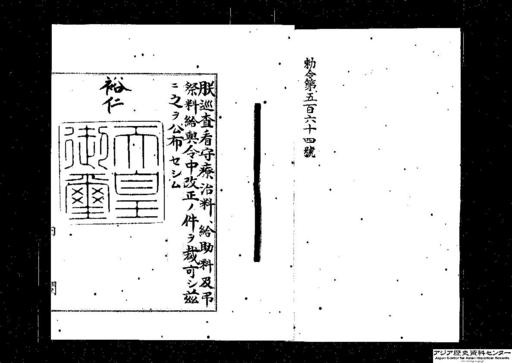 勅令第五百六十四號
朕巡査看守療治料、給助料及弔
祭料給與令中改正ノ件ヲ裁可シ茲
ニ之ヲ公布セシム
裕仁
天皇
御璽
内閣
アジア歴史資料センター
Japan Center for Asian Historical Records